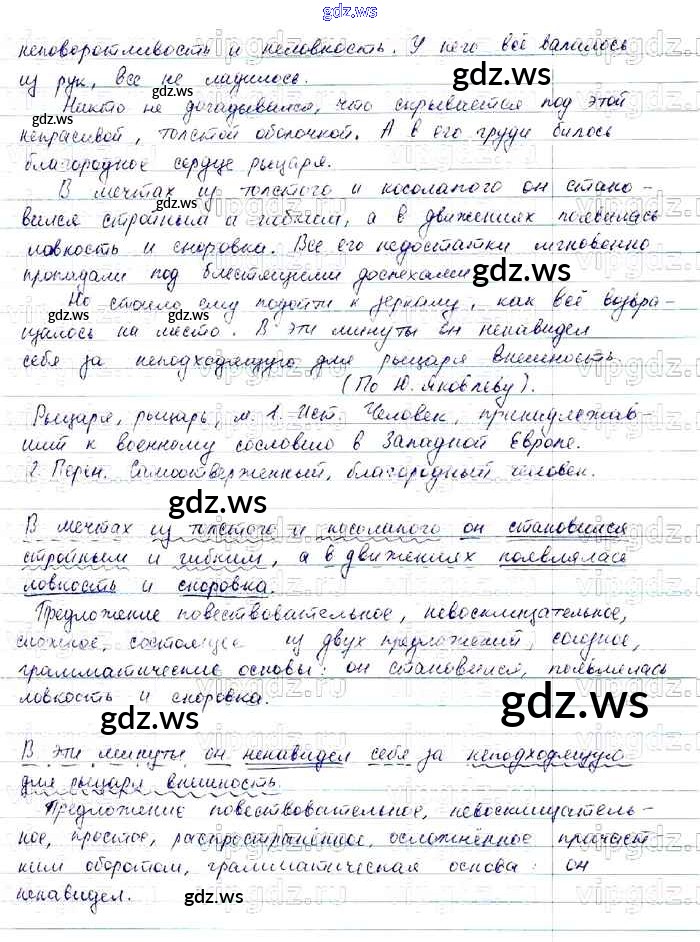 gdz.ws
неповоротливость и неловкость. У него всё валилось
из рук, все не ладилось.
gdz.ws
Никто не догадывался, что скрывается под этой
gdz.ws
некрасивой, толстой оболочкой. А в его груди билось
благородное сердце рыцаря.
В мечтах из толстого и косолапого он стано-
gdz.ws
вился стройным и гибким, а в движениях появилась
ловкость и сноровка. Все его недостатки мгновенно
пропадали под блестящими доспехами
gdz.ws
Но стоило ему подойти к зеркалу, как всё возвра-
gdz.ws gdz.ws
щалось на место. В эти минуты он ненавидел
себя за неподходящую для рыцаря внешность.
(По Ю. Яковлеву).
Рыцаря, рыцарь, м. 1. Ист. Человек, принадлежав-
ший к военному сословию в Западной Европе.
2. Перен. Самоотверженный, благородный человек.
gdz.ws
gdz.ws
В мечтах из толстого и косолапого он становился
стройным и гибким, а в движениях появлялась
ловкость и сноровка.
Предложение повествовательное, невосклицательное,
сложное, состоящее из двух предложений, союзное,
грамматические основы: он становился, появлялась
ловкость и сноровка.
gdz.ws
gdz.ws
В эти минуты он ненавидел себя за неподходящую
для рыцаря внешность.
Предложение повествовательное, невосклицатель-
ное, простое, распространённое, осложнённое причаст
ным оборотом, грамматическая основа: он
ненавидел.
gdz.ws
gdz.ws